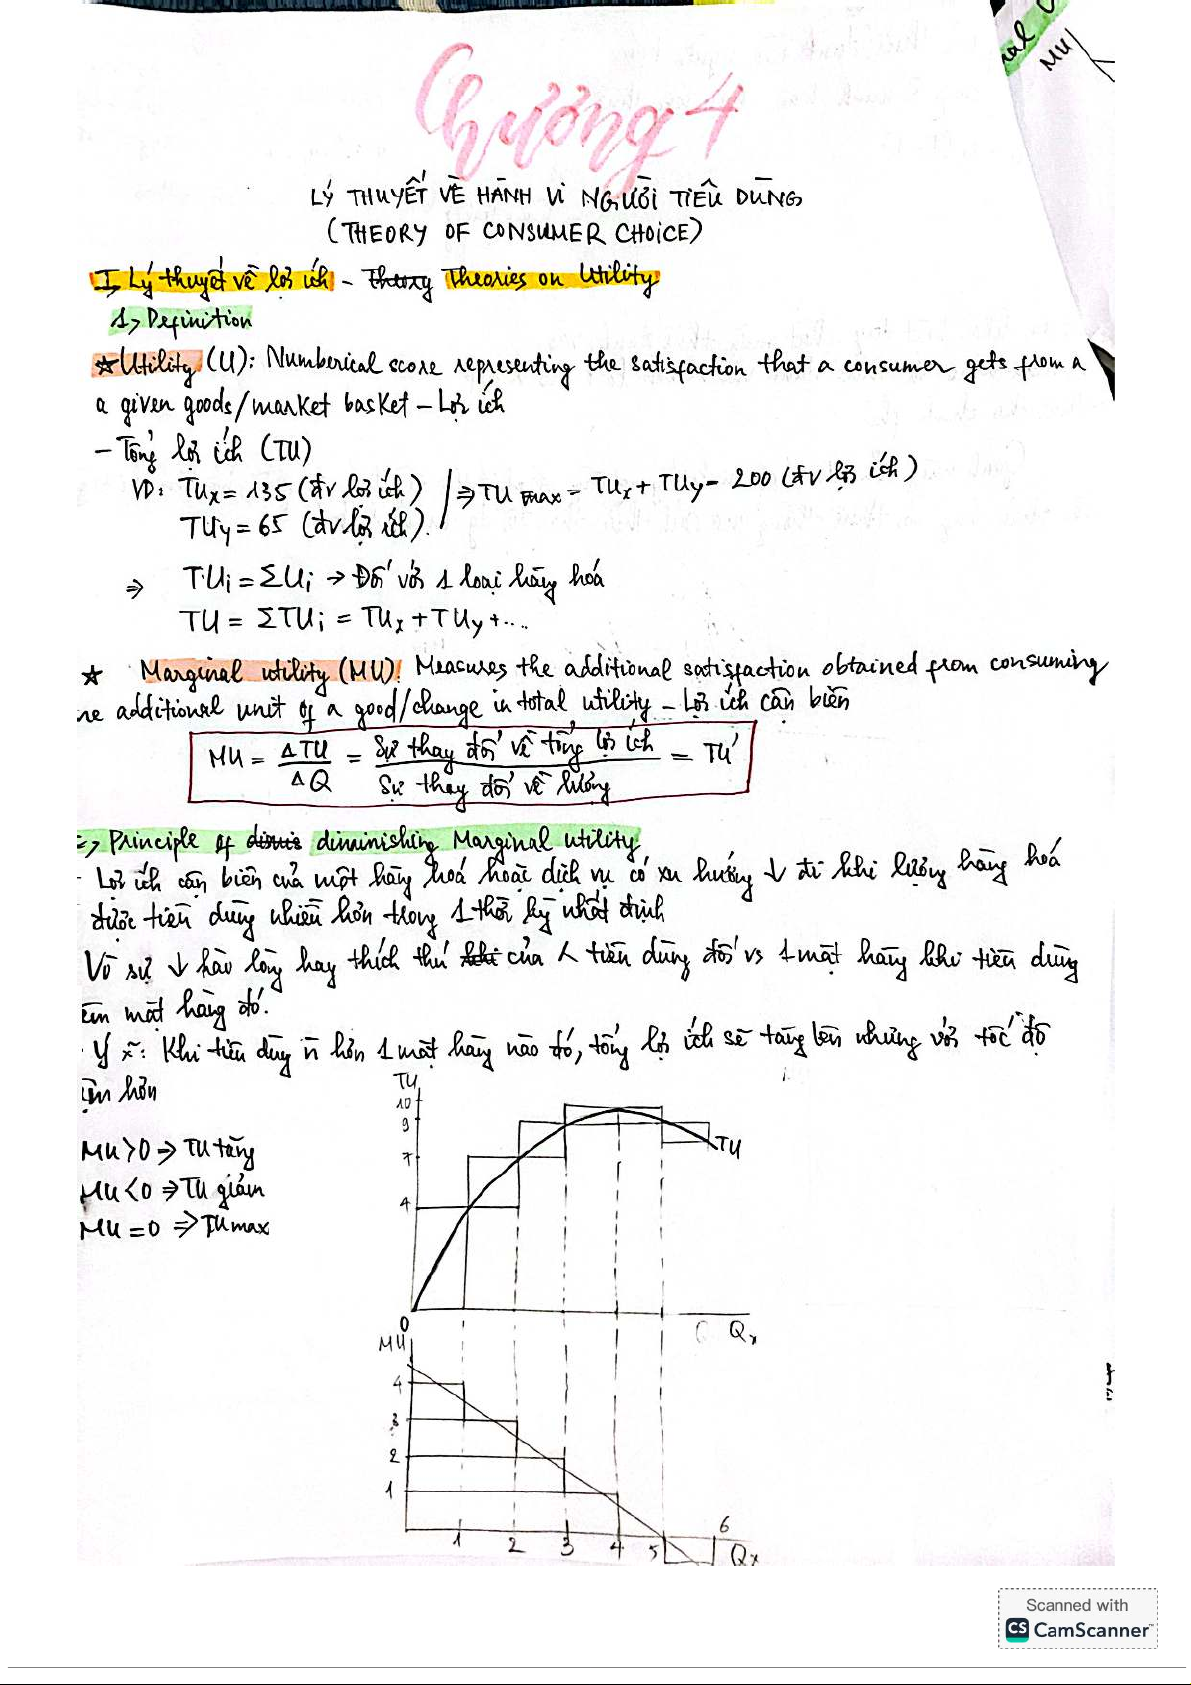 Chương 4
LÝ THUYẾT VỀ HÀNH VI NGƯỜI TIÊU DÙNG
(THEORY OF CONSUMER CHOICE)
I, Lý thuyết về lợi ích - Theory Theories on Utility
1, Definition
☆ Utility (U): Numberical score representing the satisfaction that a consumer gets from a
a given goods/market basket - Lợi ích
- Tổng lợi ích (TU)
VD: TUx = 135 (đv lợi ích) ⇒ TU max = TUx + TUy = 200 (đv lợi ích)
TUy = 65 (đv lợi ích).
⇒ TUi = ΣUi → Đối với 1 loại hàng hóa
TU = ΣTUi = TUx + TUy + ...
☆ Marginal utility (MU): Measures the additional satisfaction obtained from consuming
ne additional unit of a good/change in total utility - Lợi ích cận biên
MU = ΔTU/ΔQ = Sự thay đổi về tổng lợi ích/Sự thay đổi về lượng = TU'
Principle of diminishing Marginal utility
- Lợi ích cận biên của một hàng hoá hoặc dịch vụ có xu hướng ↓ đi khi lượng hàng hoá
được tiêu dùng nhiều hơn trong 1 thời kỳ nhất định
Vì sự ↓ hài lòng hay thích thú khi của tiêu dùng đối vs 1 mặt hàng khi tiêu dùng
êm mặt hàng đó.
Ý n̄: Khi tiêu dùng n̄ hơn 1 mặt hàng nào đó, tổng lợi ích sẽ tăng lên nhưng với tốc độ
ậm hơn
MU > 0 ⇒ TU tăng
MU < 0 ⇒ TU giảm
MU = 0 ⇒ TU max
TU
10
9
7
4
TU
0
6 Qx
MU
4
3
2
1
1 2 3 4 5 6
Qx
Scanned with
CS CamScanner